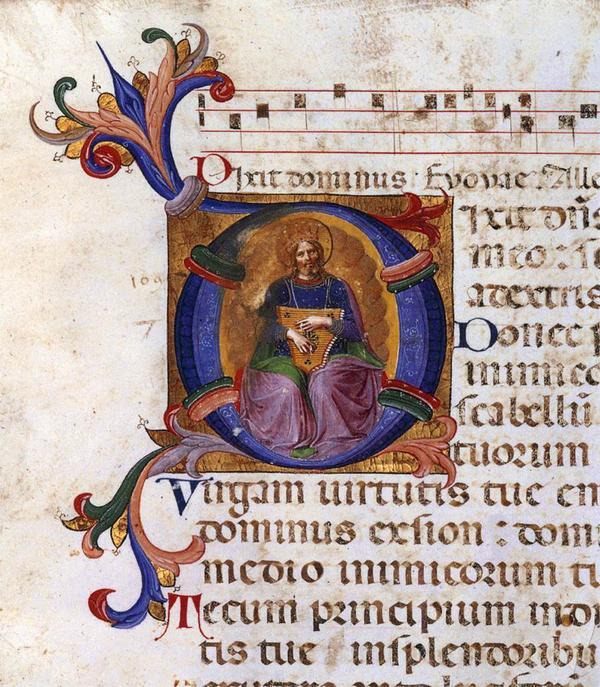 Dixit dominus. Evovae. Alle
Dixit dñs
meo: se
adextris
Donec p
inimico
scabellū
tuorum
Virgam virtutis tue em
dominus exsion: domi
medio inimicorum tu
Tecum principium indi
tis tue insplendoribu